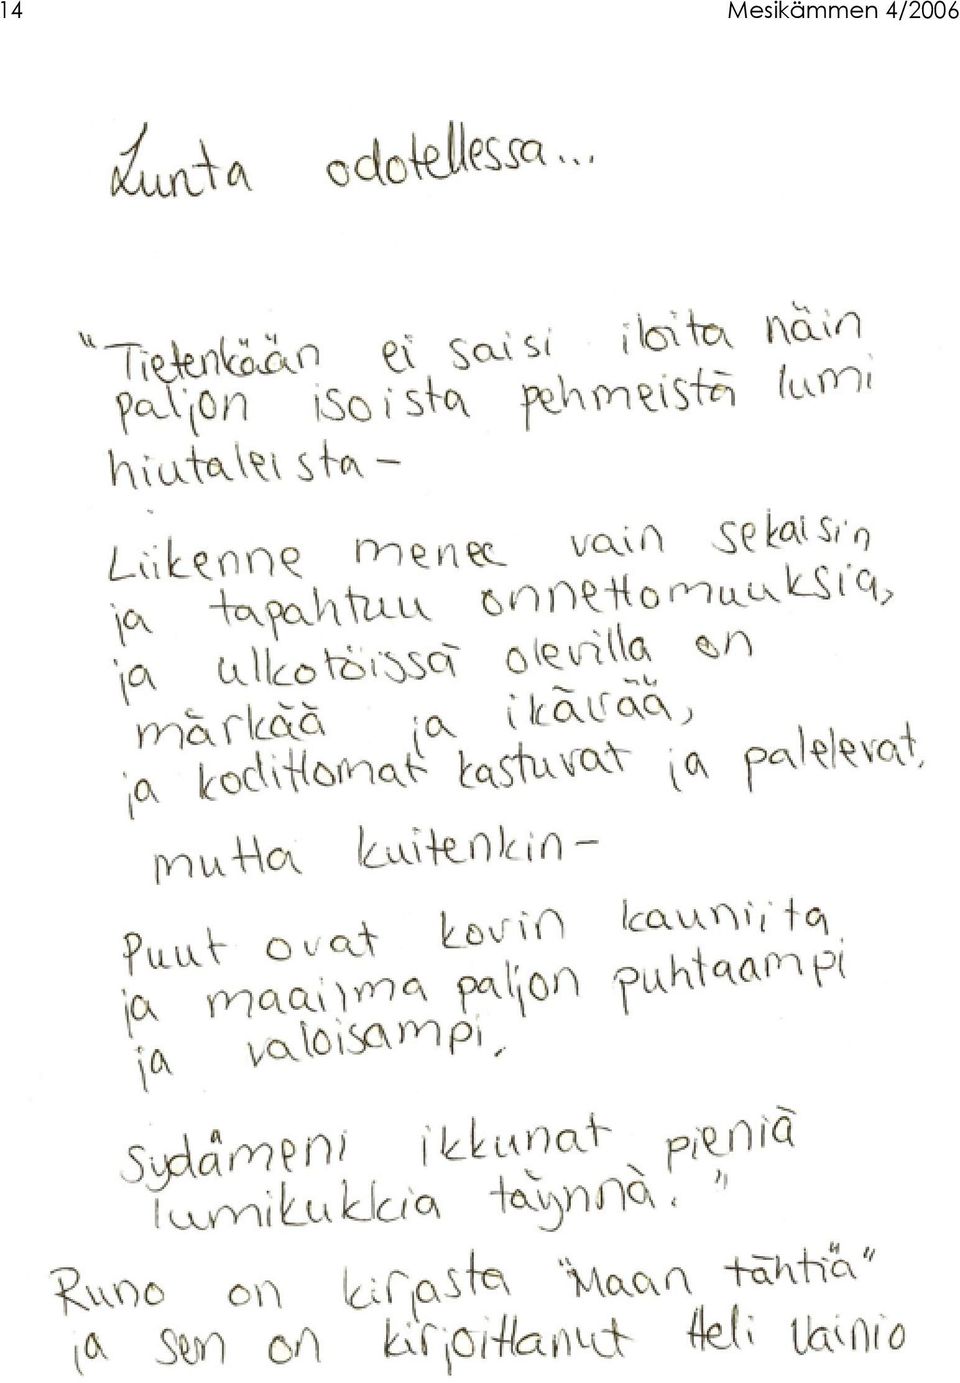 14 Mesikämmen 4/2006
Lunta odotellessa...
"Tietenkään ei saisi iloita näin
paljon isoista pehmeistä lumi
hiutaleista-
Liikenne menee vain sekaisin
ja tapahtuu onnettomuuksia,
ja ulkotöissä olevilla on
märkää ja ikävää,
ja kodittomat kastuvat ja palelevat,
mutta kuitenkin-
Puut ovat kovin kauniita
ja maailma paljon puhtaampi
ja valoisampi.
Sydämeni ikkunat pieniä
lumikukkia täynnä."
Runo on kirjasta "Maan tähtiä"
ja sen on kirjoittanut Heli Vainio